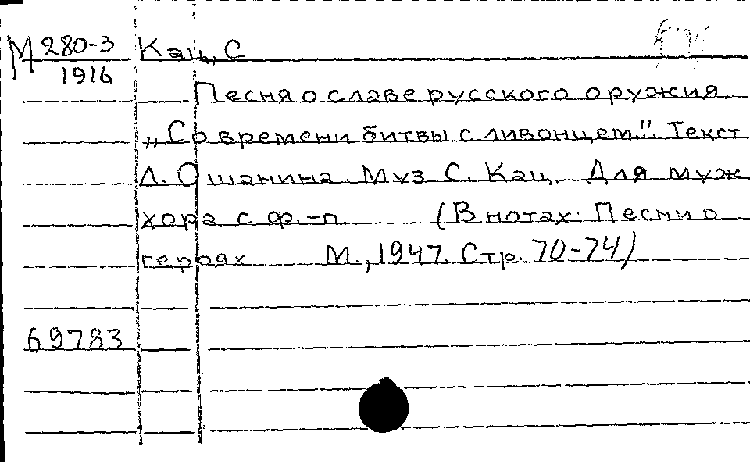 М 280-3 Кац, С
1916
Песня о славе русского оружия
„Со времени битвы с ливонцем". Текст
Л. Ошанина. Муз. С. Кац. Для муж
хора с ф.-п (В нотах: Песни о
героях М., 1947. Стр. 70-74)
69783